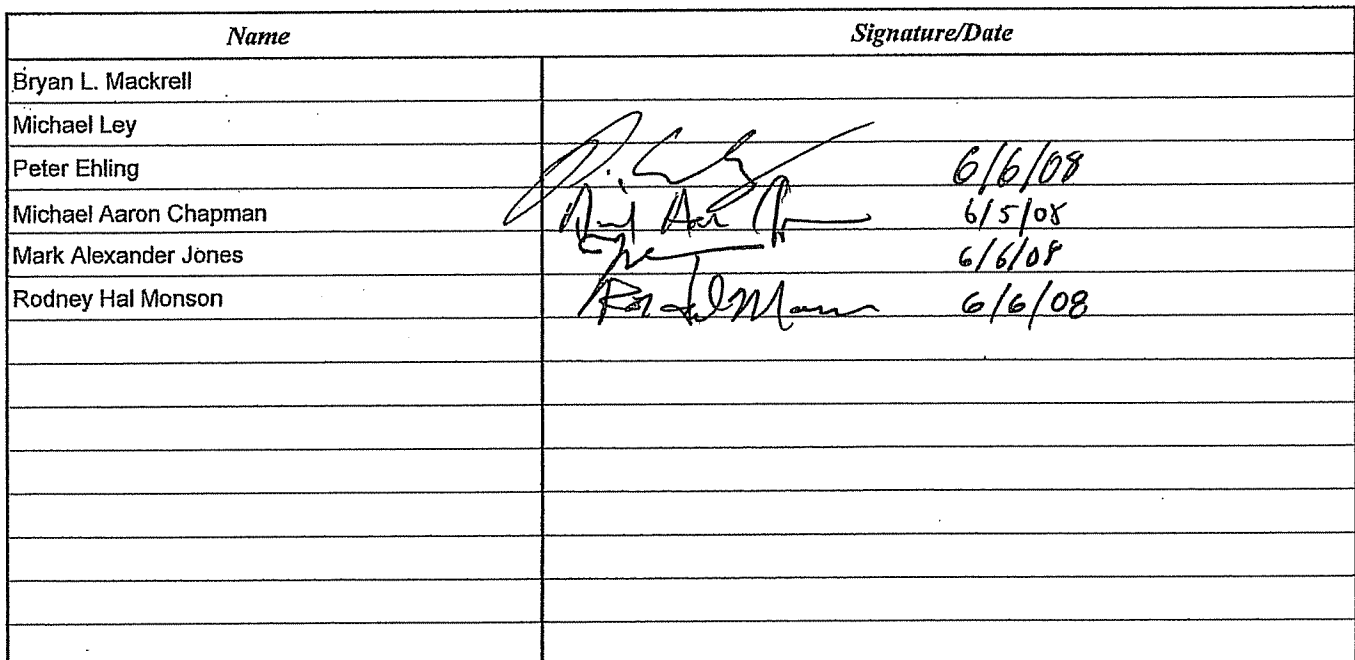 Name Signature/Date
Bryan L. Mackrell
Michael Ley
Peter Ehling 6/6/08
Michael Aaron Chapman 6/5/08
Mark Alexander Jones 6/6/08
Rodney Hal Monson 6/6/08